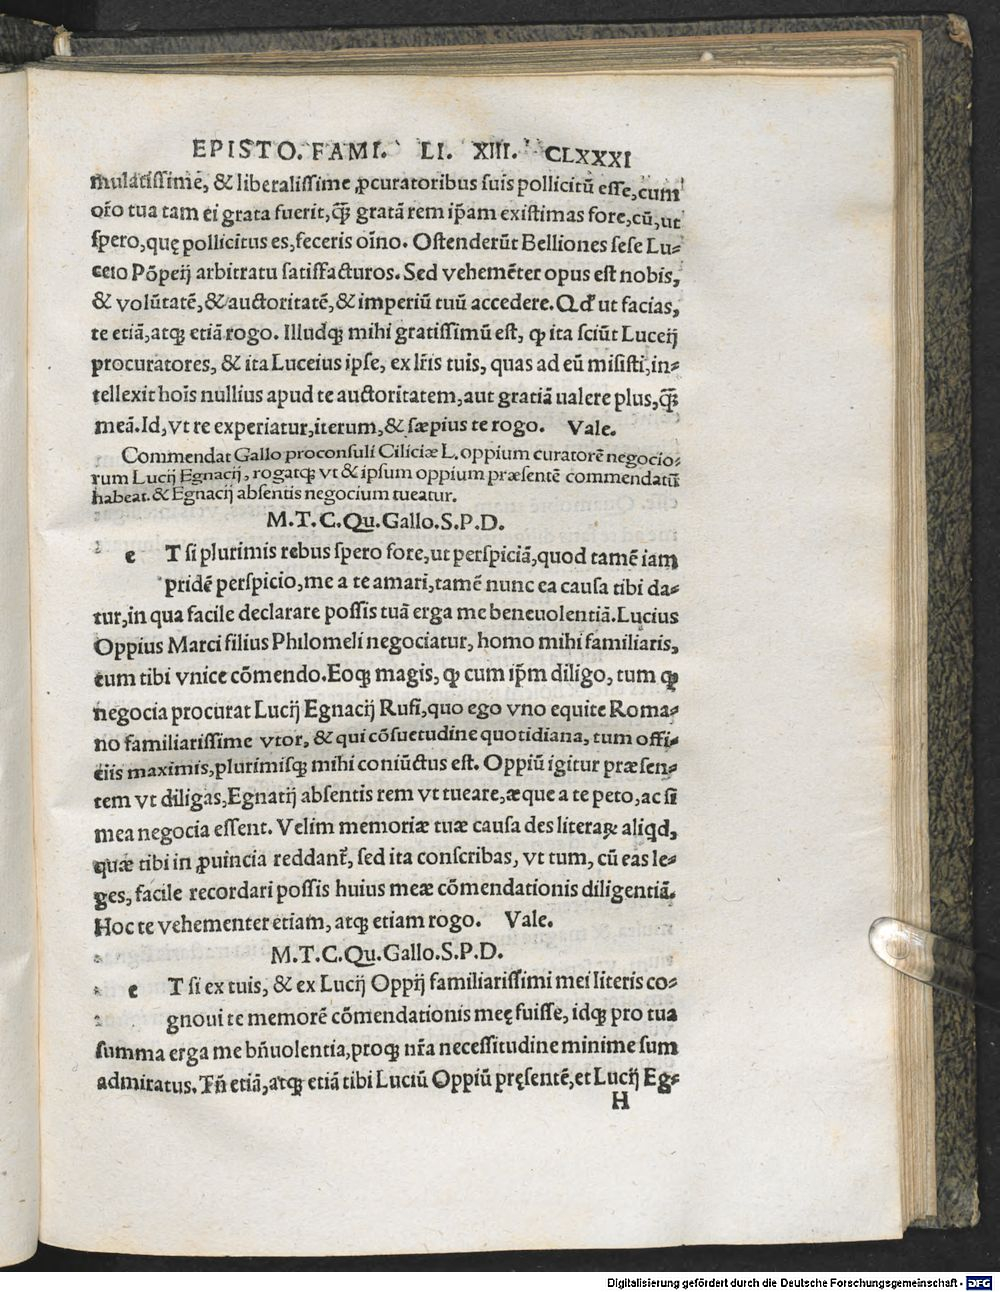 EPISTO. FAMI. LI. XIII. CLXXXI
mulatissimē, & liberalissime ꝓcuratoribus suis pollicitū esse, cum
or̄o tua tam ei grata fuerit, qꝫ̄ gratā rem ip̄am existimas fore, cū, ut
spero, quę pollicitus es, feceris oīno. Ostenderūt Belliones sese Lu⸗
ceio Pōpeij arbitratu satisfacturos. Sed vehemēter opus est nobis,
& volūtatē, & auctoritatē, & imperiū tuū accedere. Qđ ut facias,
te etiā, atqꝫ etiā rogo. Illudqꝫ mihi gratissimū est, ꝙ ita sciūt Luceij
procuratores, & ita Luceius ipse, ex lr̄is tuis, quas ad eū misisti, in⸗
tellexit hoīs nullius apud te auctoritatem, aut gratiā ualere plus, qꝫ̄
meā. Id, vt re experiatur, iterum, & sæpius te rogo. Vale.
Commendat Gallo proconsuli Ciliciæ L. oppium curatorē negocio⸗
rum Lucij Egnacij, rogatqꝫ vt & ipsum oppium præsentē commendatū
habeat. & Egnacij absentis negocium tueatur.
M.T.C.Qu.Gallo.S.P.D.
e T si plurimis rebus spero fore, ut perspiciā, quod tamē iam
pridē perspicio, me a te amari, tamē nunc ea causa tibi da⸗
tur, in qua facile declarare possis tuā erga me beneuolentiā. Lucius
Oppius Marci filius Philomeli negociatur, homo mihi familiaris,
eum tibi vnice cōmendo. Eoqꝫ magis, ꝙ cum ip̄m diligo, tum ꝙ
negocia procurat Lucij Egnacij Rufi, quo ego vno equite Roma⸗
no familiarissime vtor, & qui cōsuetudine quotidiana, tum offi⸗
ciis maximis, plurimisqꝫ mihi coniūctus est. Oppiū igitur præsen⸗
tem vt diligas, Egnatij absentis rem vt tueare, æque a te peto, ac si
mea negocia essent. Velim memoriæ tuæ causa des literaꝝ aliqd,
quæ tibi in ꝓuincia reddant᷑, sed ita conscribas, vt tum, cū eas le⸗
ges, facile recordari possis huius meæ cōmendationis diligentiā.
Hoc te vehementer etiam, atqꝫ etiam rogo. Vale.
M.T.C.Qu.Gallo.S.P.D.
e T si ex tuis, & ex Lucij Oppij familiarissimi mei literis co⸗
gnoui te memorē cōmendationis meę fuisse, idqꝫ pro tua
summa erga me bn̄uolentia, proqꝫ nr̄a necessitudine minime sum
admiratus. Tn̄ etiā, atqꝫ etiā tibi Luciū Oppiū pręsentē, et Lucij Eg⸗
H
Digitalisierung gefördert durch die Deutsche Forschungsgemeinschaft - DFG